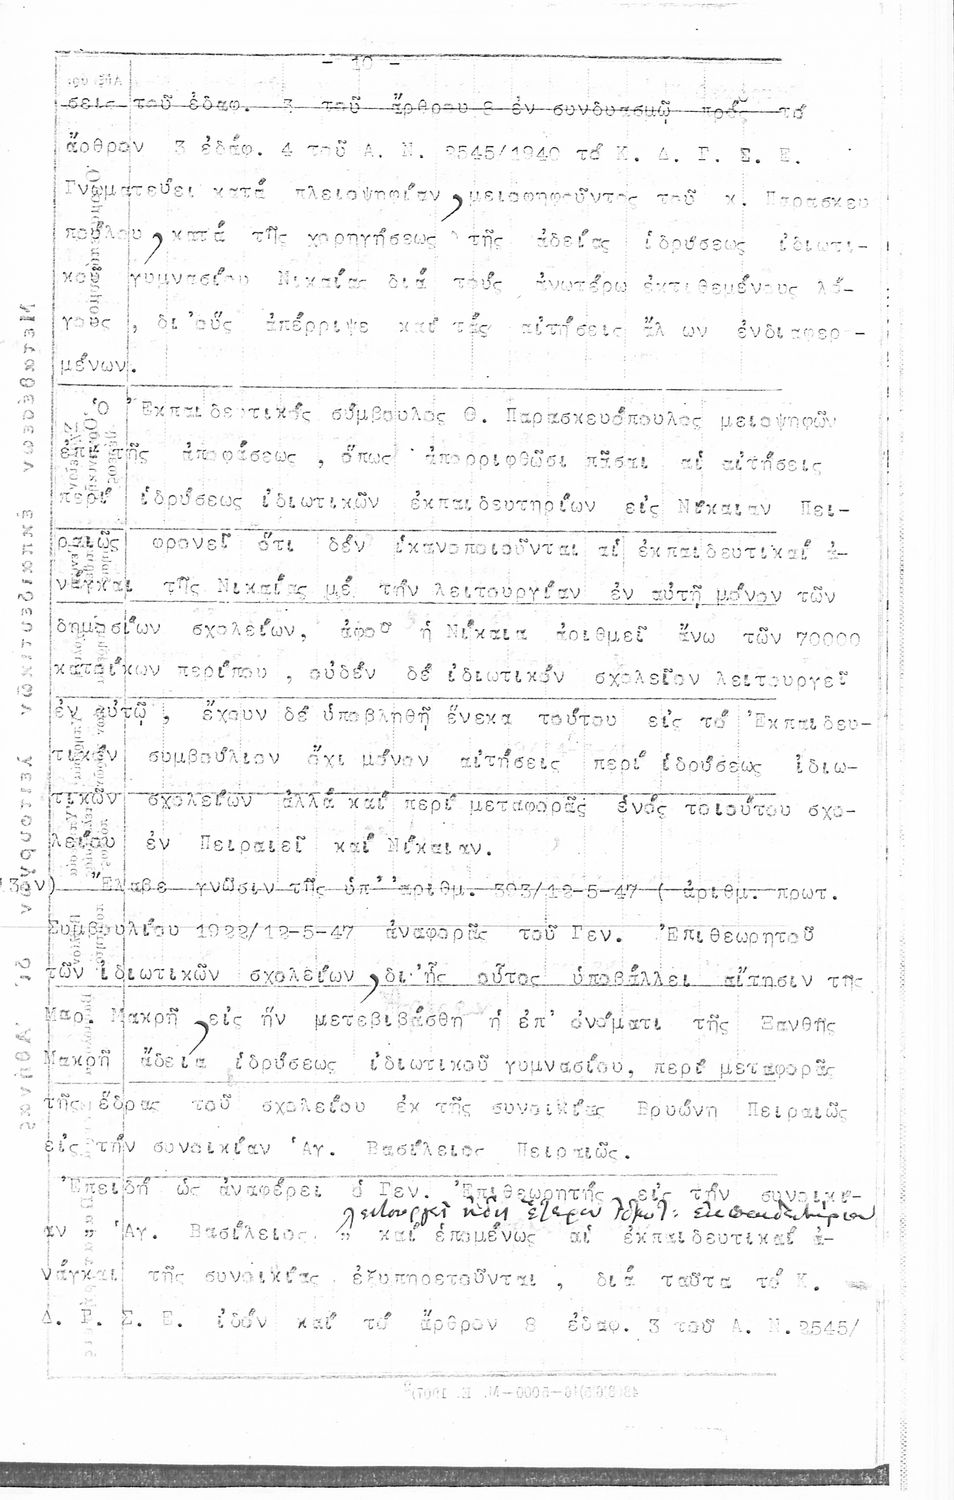 - 10 -
σεις τοῦ ἐδαφ. 3 τοῦ ἄρθρου 8 ἐν συνδυασμῷ πρός τό
ἄρθρον 3 ἐδάφ. 4 τοῦ Α. Ν. 2545/1940 τό Κ. Δ. Γ. Σ. Ε.
Γνωματεύει κατά πλειοψηφίαν, μειοψηφοῦντος τοῦ κ. Παρασκευ
πούλου, κατά τῆς χορηγήσεως τῆς ἀδείας ἱδρύσεως ἰδιωτι-
κοῦ γυμνασίου Νικαίας διά τούς ἀνωτέρω ἐκτιθεμένους λό-
γους , δι'οὕς ἀπέρριψε καί τάς αἰτήσεις ἄλ ων ἐνδιαφερ -
μένων.
Ὁ Ἐκπαιδευτικός σύμβουλος Θ. Παρασκευόπουλος μειοψηφῶν
ἐπί τῆς ἀποφάσεως , ὅπως ἀπορριφθῶσι πᾶσαι αἱ αἰτήσεις
περί ἱδρύσεως ἰδιωτικῶν ἐκπαιδευτηρίων εἰς Νίκαιαν Πει-
ραιῶς φρονεῖ ὅτι δέν ἱκανοποιοῦνται αἱ ἐκπαιδευτικαί ἀ-
νάγκαι τῆς Νικαίας μέ τήν λειτουργίαν ἐν αὐτῇ μόνον τῶν
δημοσίων σχολείων, ἀφοῦ ἡ Νίκαια ἀριθμεῖ ἄνω τῶν 70000
κατοίκων περίπου , οὐδέν δέ ἰδιωτικόν σχολεῖον λειτουργεῖ
ἐν αὐτῷ , ἔχουν δέ ὑποβληθῆ ἕνεκα τούτου εἰς τό Ἐκπαιδευ-
τικόν συμβούλιον ὄχι μόνον αἰτήσεις περί ἱδρύσεως ἰδιω-
τικῶν σχολείων ἀλλά καί περί μεταφορᾶς ἑνός τοιούτου σχο-
λείου ἐν Πειραιεῖ καί Νίκαιαν.
13ον) Ἔλαβε γνῶσιν τῆς ὑπ'ἀριθμ. 393/12-5-47 ( ἀριθμ. πρωτ.
Συμβουλίου 1922/12-5-47 ἀναφορᾶς τοῦ Γεν. Ἐπιθεωρητοῦ
τῶν ἰδιωτικῶν σχολείων, δι'ἧς οὗτος ὑποβάλλει αἴτησιν της
Μαρ. Μακρῆ, εἰς ἥν μετεβιβάσθη ἡ ἐπ' ὀνόματι τῆς Ξανθῆς
Μακρῆ ἄδεια ἱδρύσεως ἰδιωτικοῦ γυμνασίου, περί μεταφορᾶς
τῆς ἕδρας τοῦ σχολείου ἐκ τῆς συνοικίας Βρυώνη Πειραιῶς
εἰς τήν συνοικίαν Ἁγ. Βασίλειος Πειραιῶς.
Ἐπειδή ὡς ἀναφέρει ὁ Γεν. Ἐπιθεωρητής εἰς τήν συνοικί-
λειτουργεῖ ἤδη ἕτερον ἰδιωτ. ἐκπαιδευτήριον
αν " Ἁγ. Βασίλειος " καί ἑπομένως αἱ ἐκπαιδευτικαί ἀ-
νάγκαι τῆς συνοικίας ἐξυπηρετοῦνται , διά ταῦτα τό Κ.
Δ. Γ. Σ. Ε. ἰδόν καί τό ἄρθρον 8 ἐδαφ. 3 τοῦ Α. Ν. 2545/
Μεταθέσεων ἐκπαιδευτικῶν λειτουργῶν